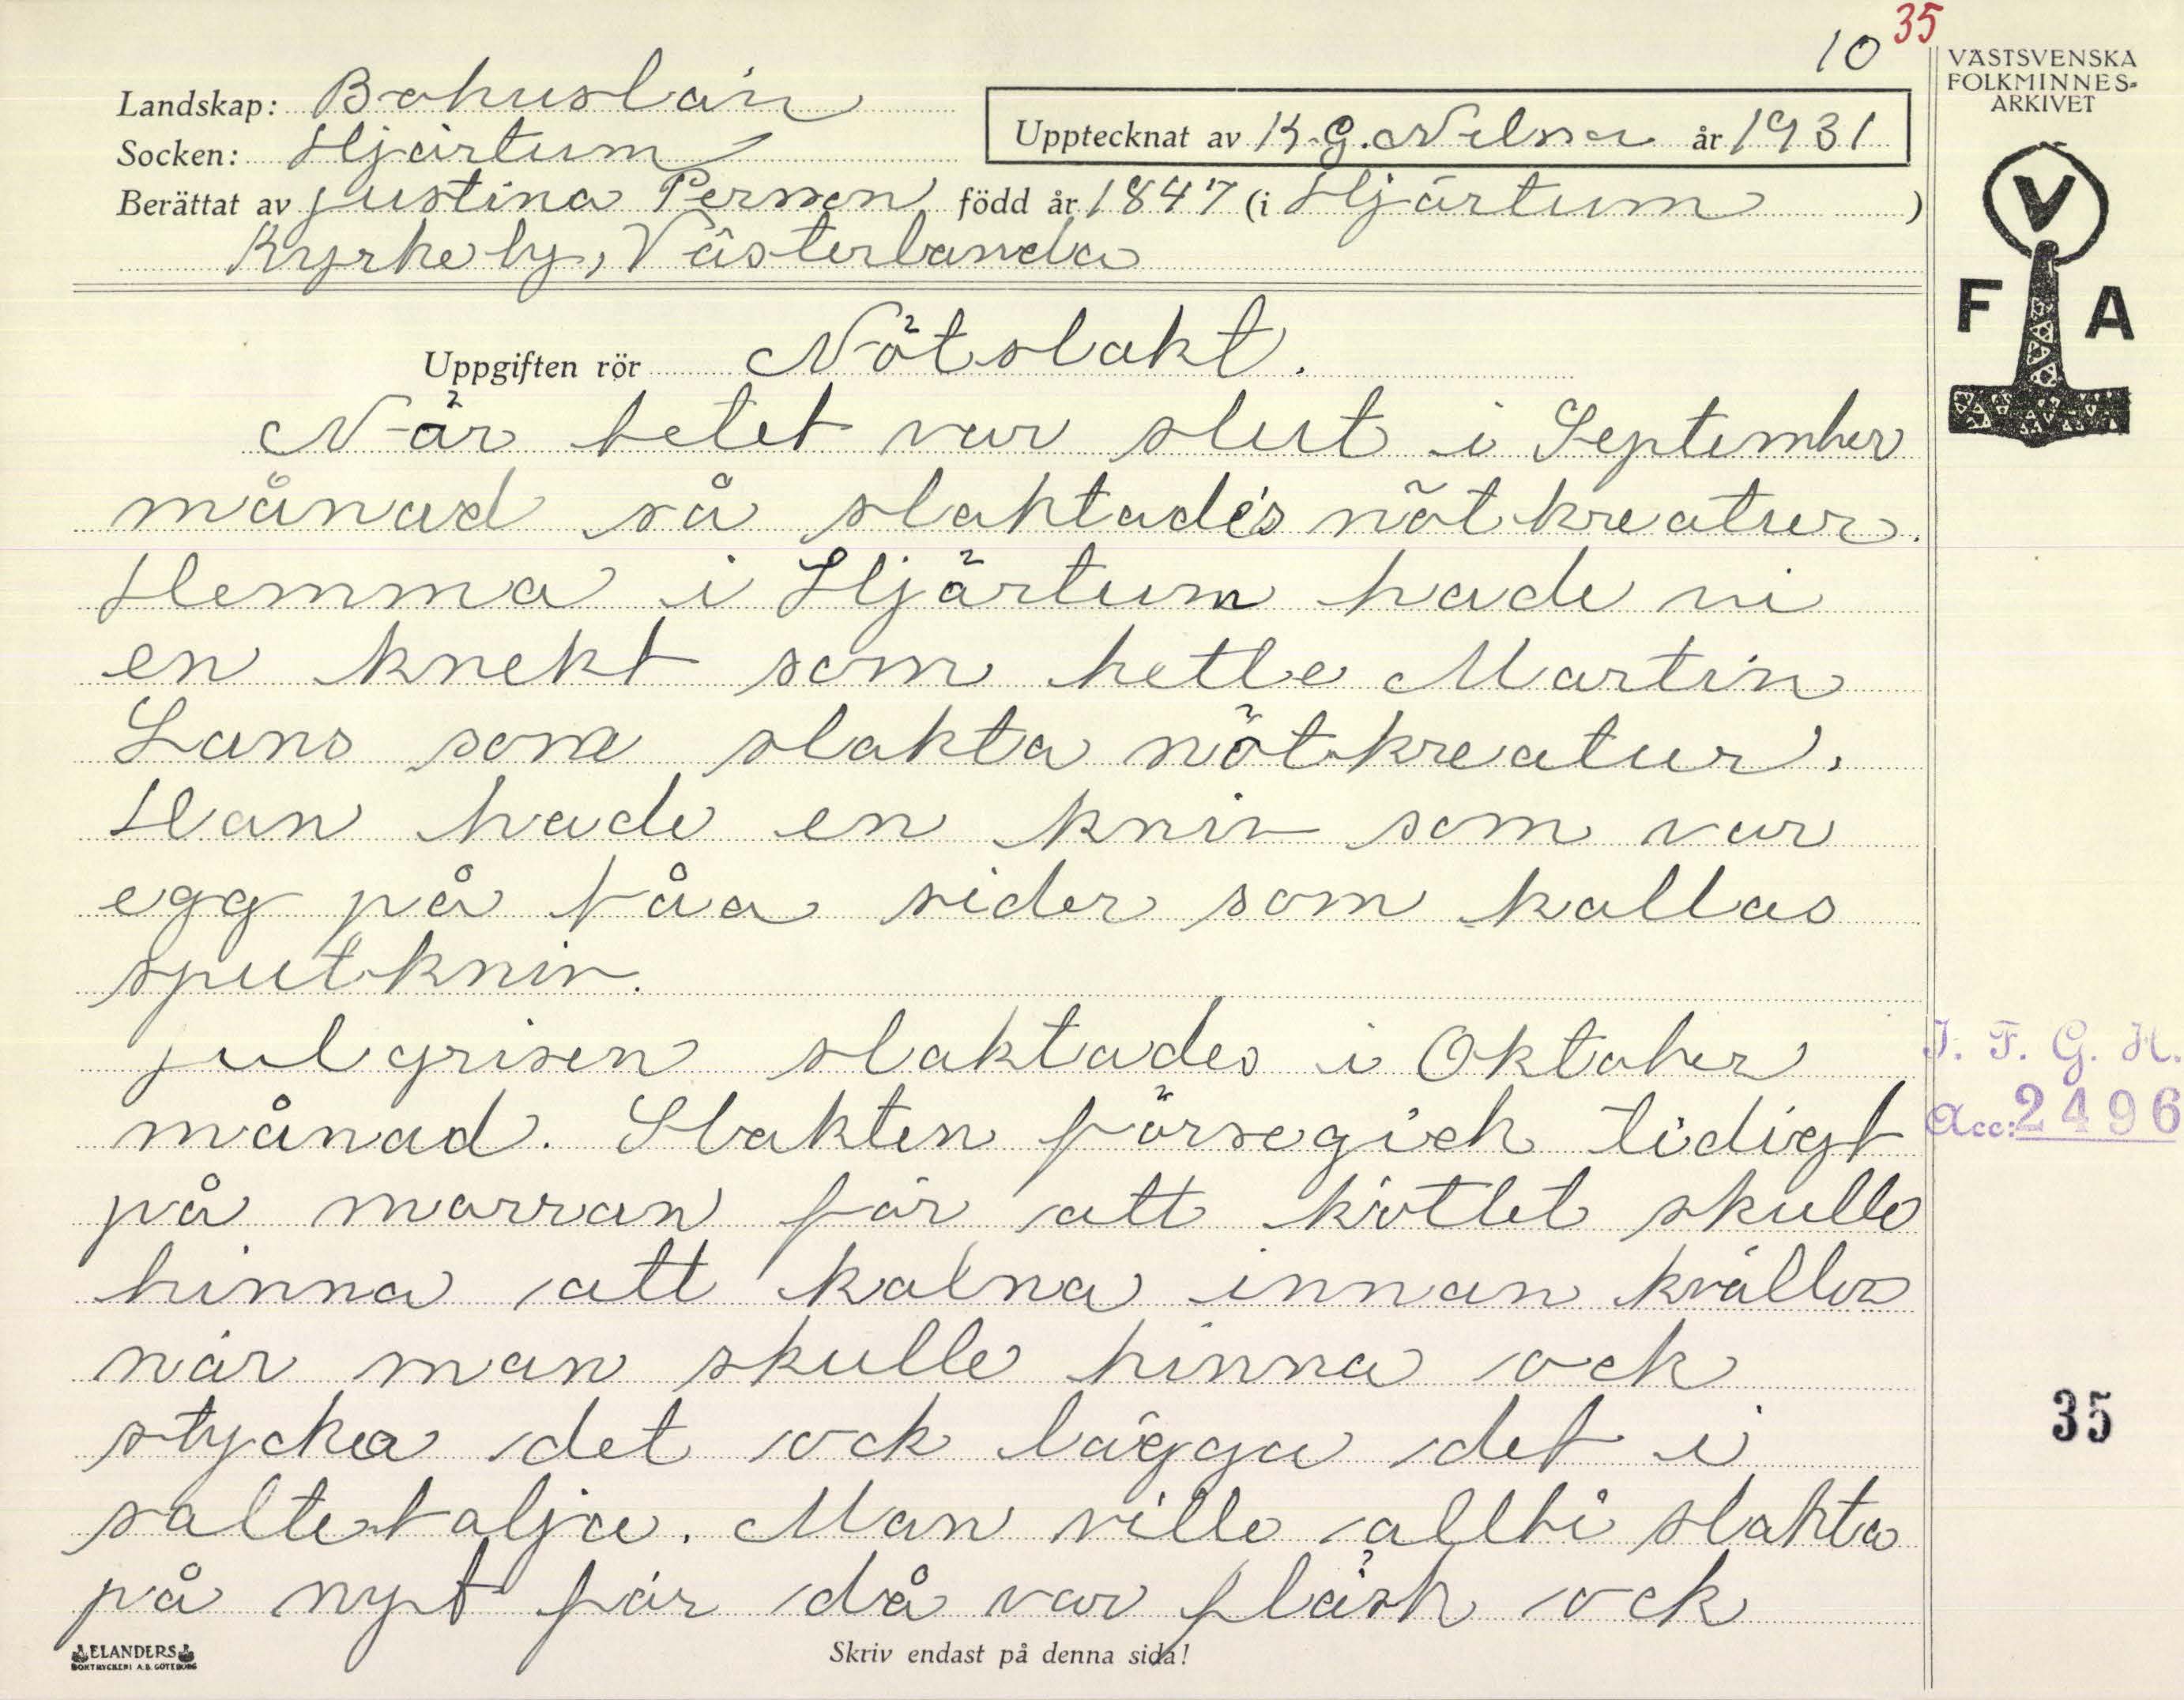 10 35
VÄSTSVENSKA
FOLKMINNES-
ARKIVET
Landskap: Bohuslän
Upptecknat av K.G. Nilson år 1931
Socken: Hjärtum
Berättat av Justina Person född år 1847 (i Hjärtum)
Kyrkeby, Västerlanda
V
F A
Uppgiften rör Nötslakt.
När betet var slut i September
månad så slaktades nötkreatur.
Hemma i Hjärtum hade vi
en knekt som hette Martin
Lans som slakta nötkreatur.
Han hade en kniv som var
egg på tåa sider som kallas
sputkniv.
julgrisen slaktades i Oktober
månad. Slakten försegick tidigt
på morran för att köttet skulle
hinna att kalna innan kvällen
när man skulle hinna ock
stycka det ock lägga det i
saltetalja. Man ville allti slakta
på nyt för då var fläsk ock
J. F. G. H.
Acc: 2496
35
ELANDERS
BOKTRYCKERI A.B. GÖTEBORG
Skriv endast på denna sida!